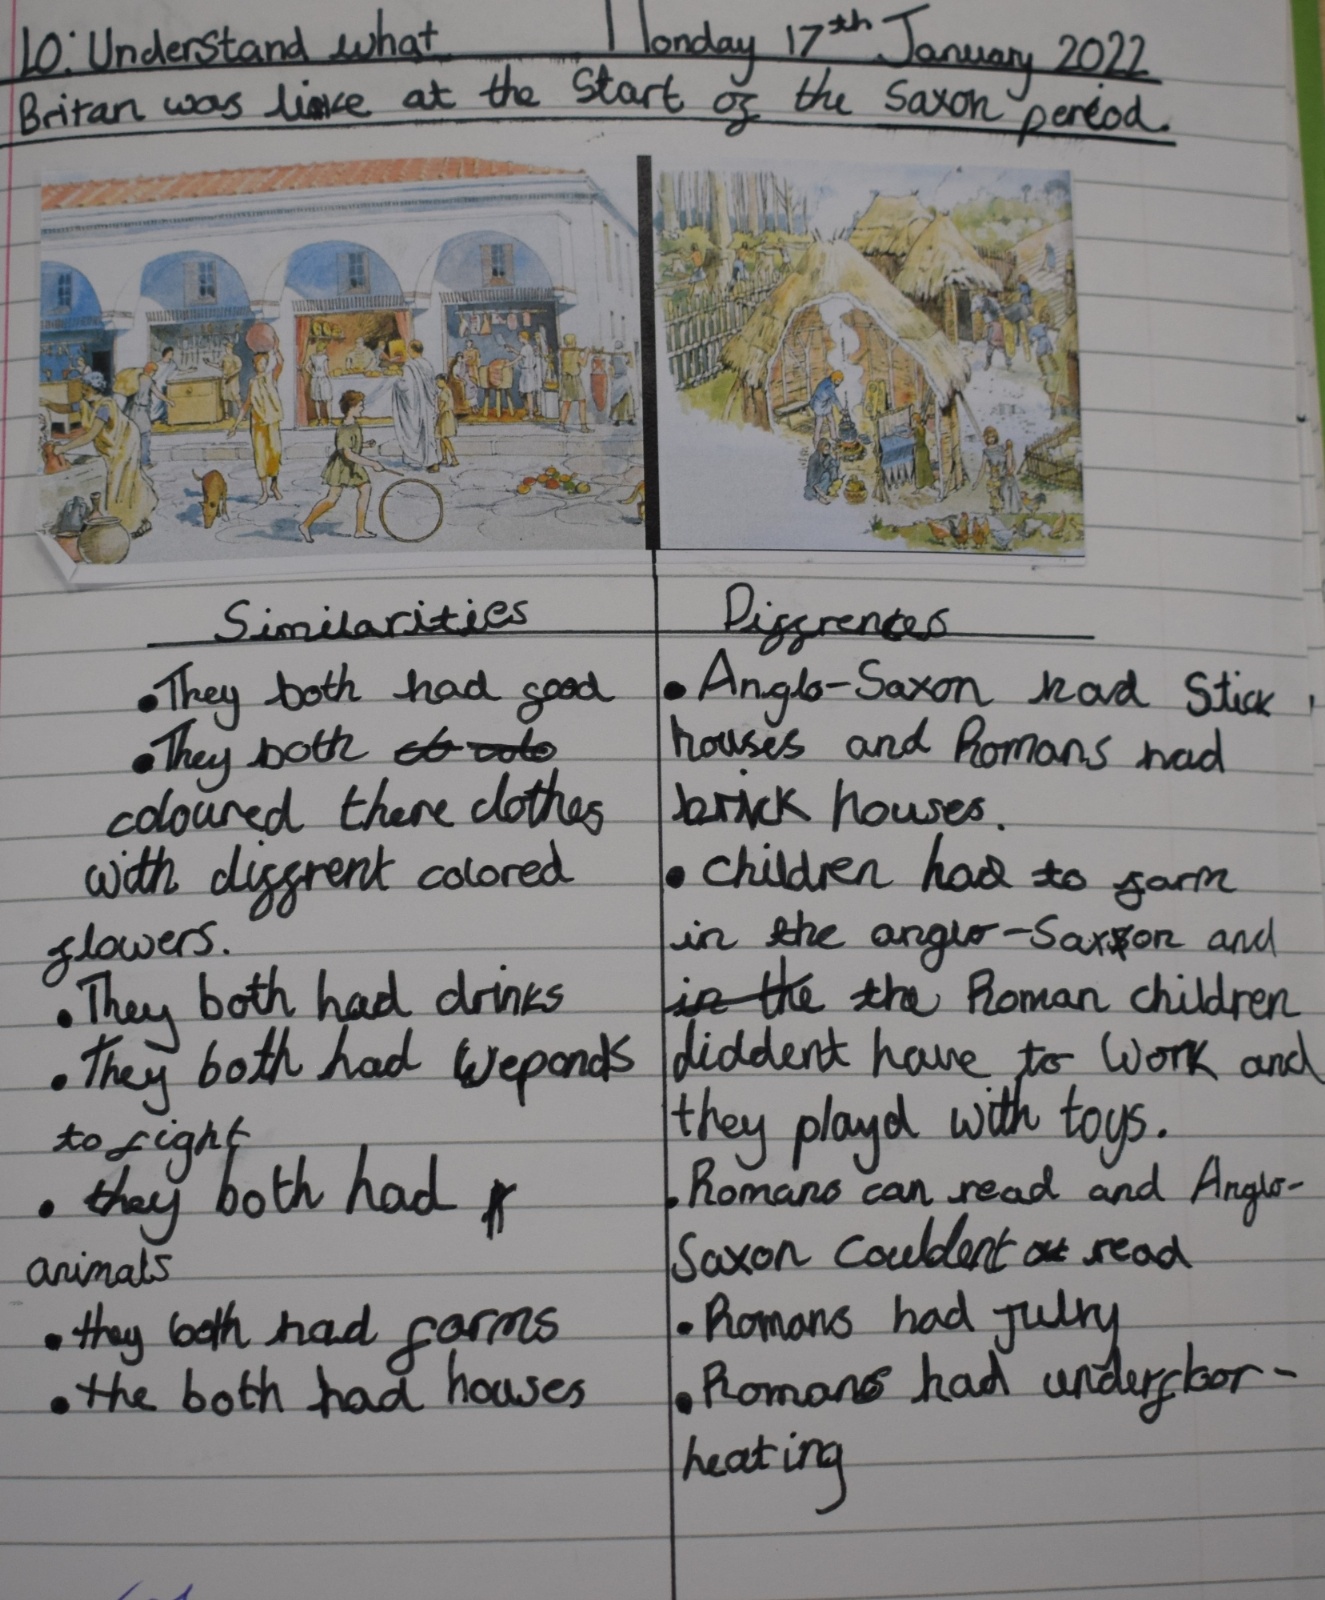 LO: Understand what Monday 17th January 2022
Britan was like at the Start of the Saxon period.
Similarities
• They both had good
• They both
coloured there clothes
with diffrent colored
flowers.
• They both had drinks
• They both had Weponds
to fight
• they both had
animals
• they both had farms
• the both had houses
Diffrences
• Anglo-Saxon had Stick
houses and Romans had
brick houses.
• children had to farm
in the anglo-Saxon and
in the the Roman children
diddent have to work and
they playd with toys.
• Romans can read and Anglo-
Saxon Couldent read
• Romans had julry
• Romans had underfloor-
heating